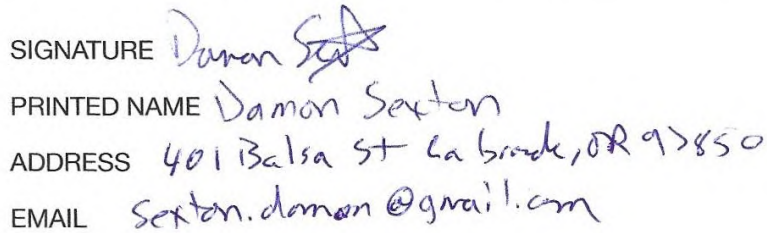 SIGNATURE Damon Sexton
PRINTED NAME Damon Sexton
ADDRESS 401 Balsa St La Grande, OR 97850
EMAIL sexton.damon@gmail.com